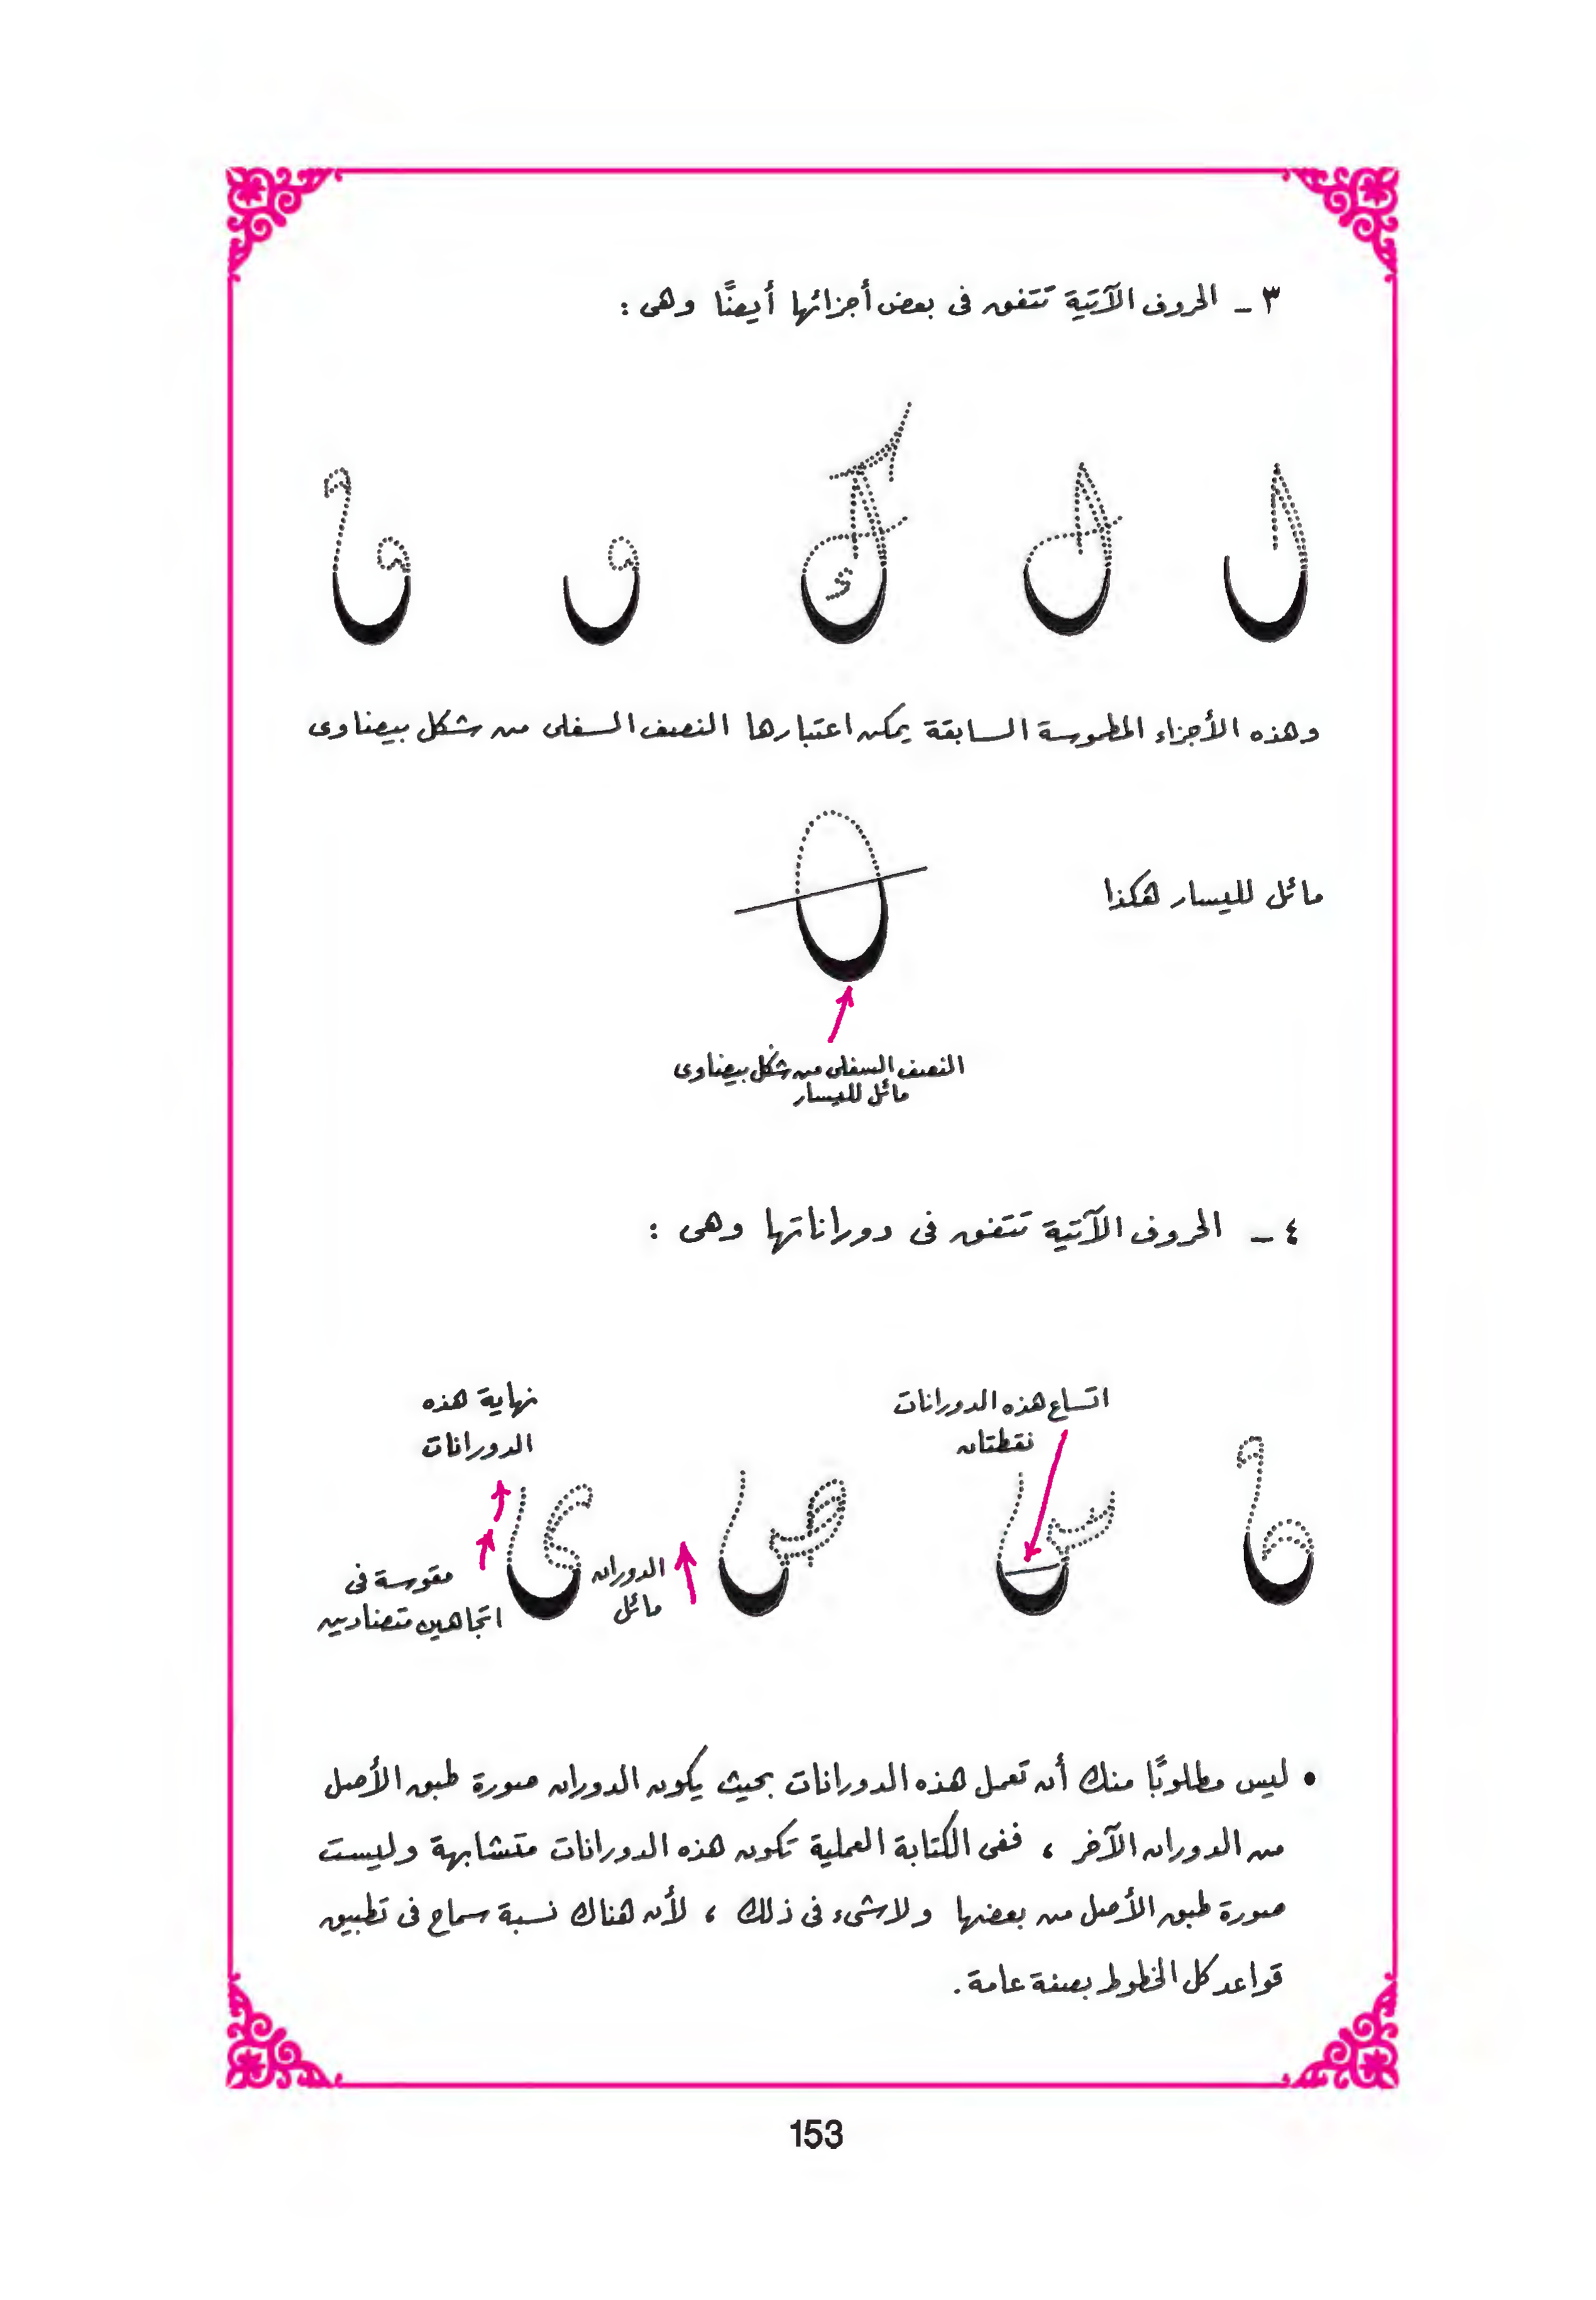 ٣ - الحروف الآتية تتفق فى بعض أجزائها أيضًا وهى :
وهذه الأجزاء المطموسة السابقة يمكن اعتبارها النصف السفلى من شكل بيضاوى
مائل لليسار هكذا
النصف السفلى من شكل بيضاوى
مائل لليسار
٤ - الحروف الآتية تتفق فى دوراناتها وهى :
اتساع هذه الدورانات
نقطتان
نهاية هذه
الدورانات
س
ص
ى
الدوران
مائل
مقوسة فى
اتجاهين متضادين
• ليس مطلوبًا منك أن تعمل هذه الدورانات بحيث يكون الدوران صورة طبق الأصل
من الدوران الآخر ، ففى الكتابة العملية تكون هذه الدورانات متشابهة وليست
صورة طبق الأصل من بعضها ولا شىء فى ذلك ، لأن هناك نسبة سماح فى تطبيق
قواعد كل الخطوط بصفة عامة .
153